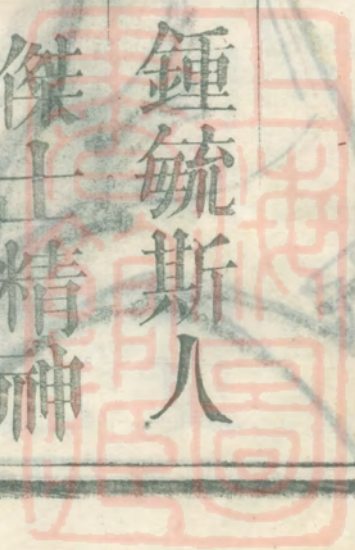 鍾毓斯人
傑士精神